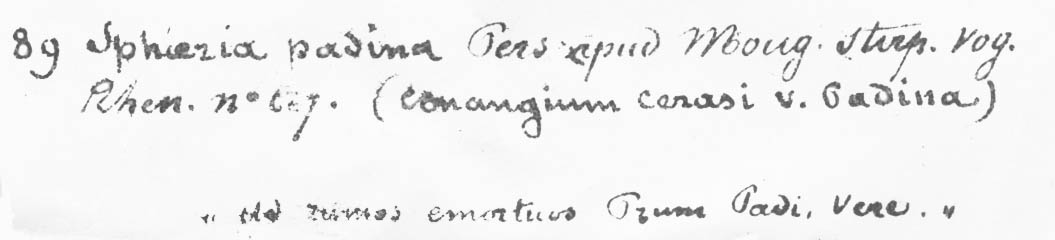 89 Sphæria padina Pers apud Moug. Stirp. Vog.
Rhen. nº (Cenangium cerasi v. Padina)
„ ad ramos emortuos Prun Padi. Vere. „